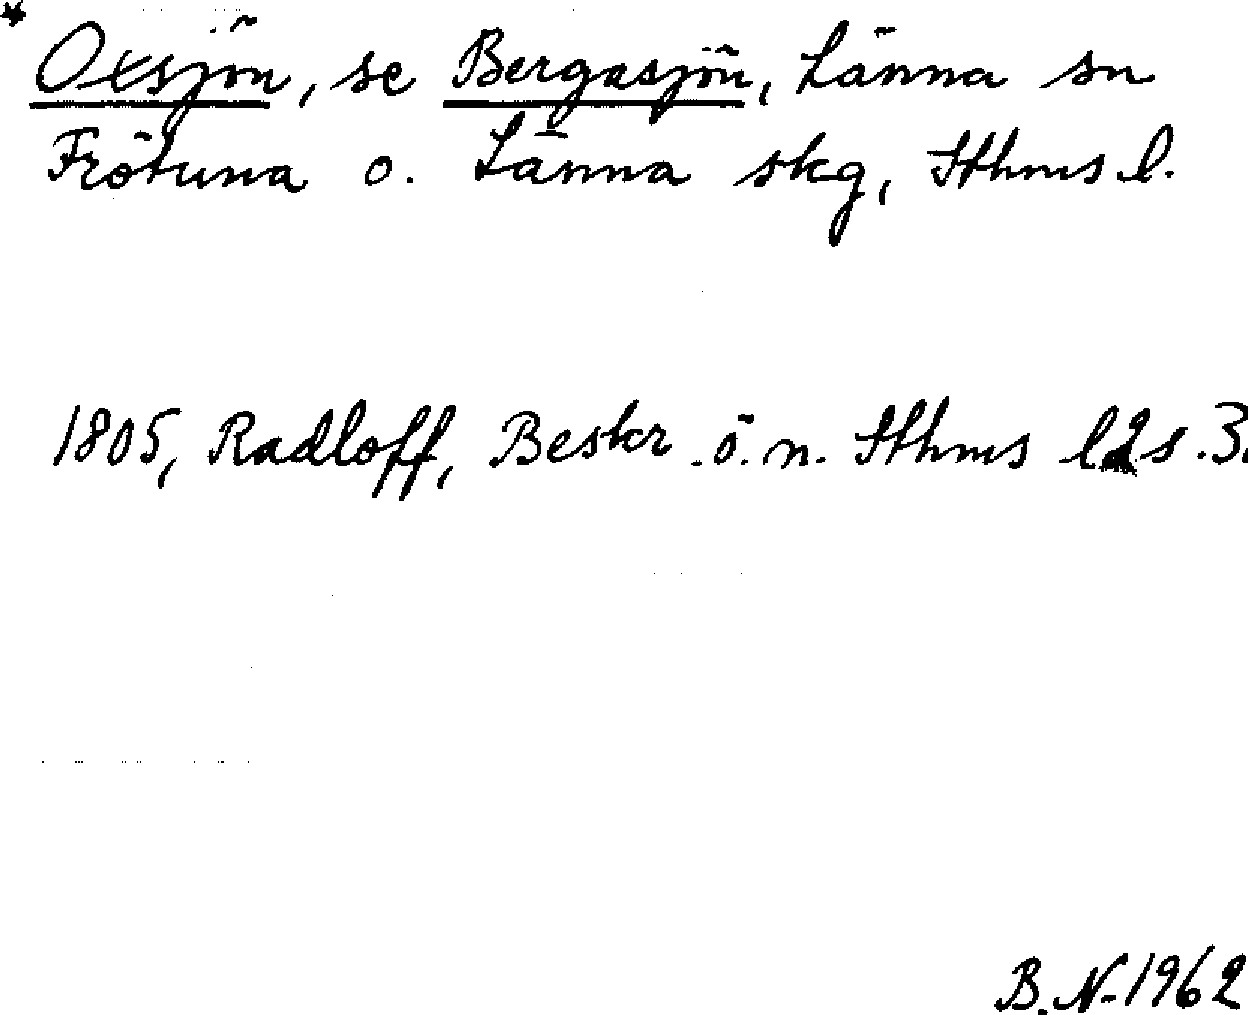 * Oxsjön, se Bergasjön, Länna sn
Frötuna o. Länna skg, Sthms l.
1805, Radloff, Beskr. ö. n. Sthms l 2 s. 3.
B. N. 1962